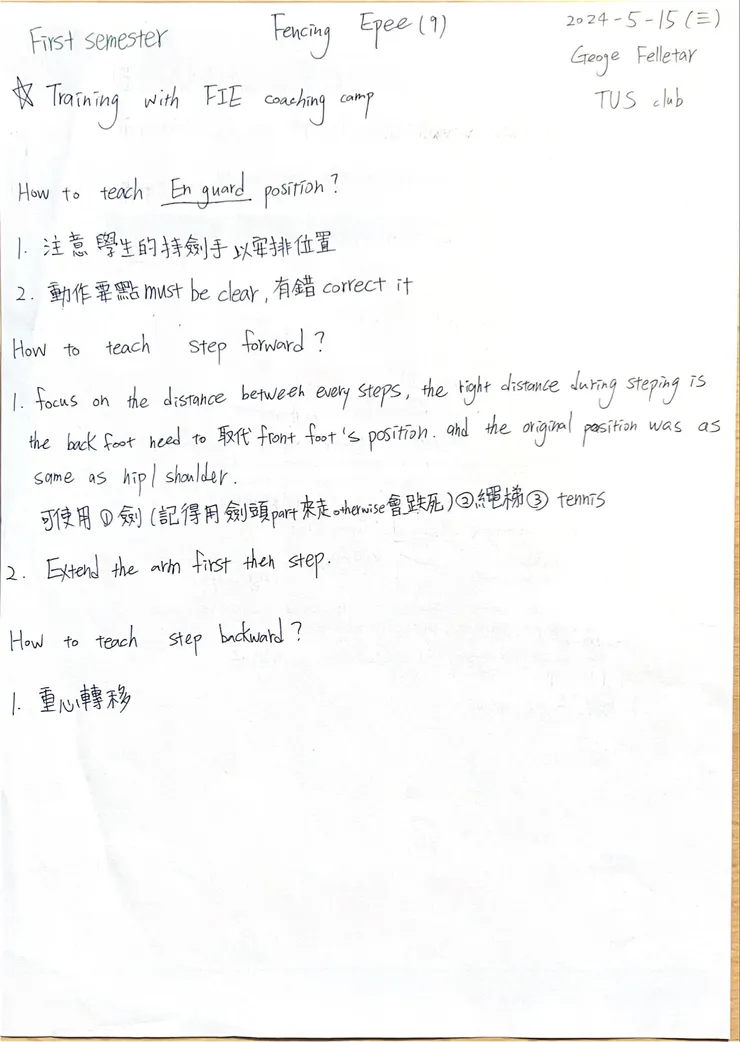 First semester
Fencing Epee (9)
2024-5-15 (三)
Geoge Felletar
TUS club
☆ Training with FIE coaching camp
How to teach En guard position?
1. 注意學生的持劍手以安排位置
2. 動作要點 must be clear, 有錯 correct it
How to teach step forward?
1. focus on the distance between every steps, the right distance during steping is
the back foot need to 取代 front foot's position. and the original position was as
same as hip/shoulder.
可使用 ① 劍 (記得用劍頭 part 來走 otherwise 會跌死) ② 繩梯 ③ tennis
2. Extend the arm first then step.
How to teach step backward?
1. 重心轉移